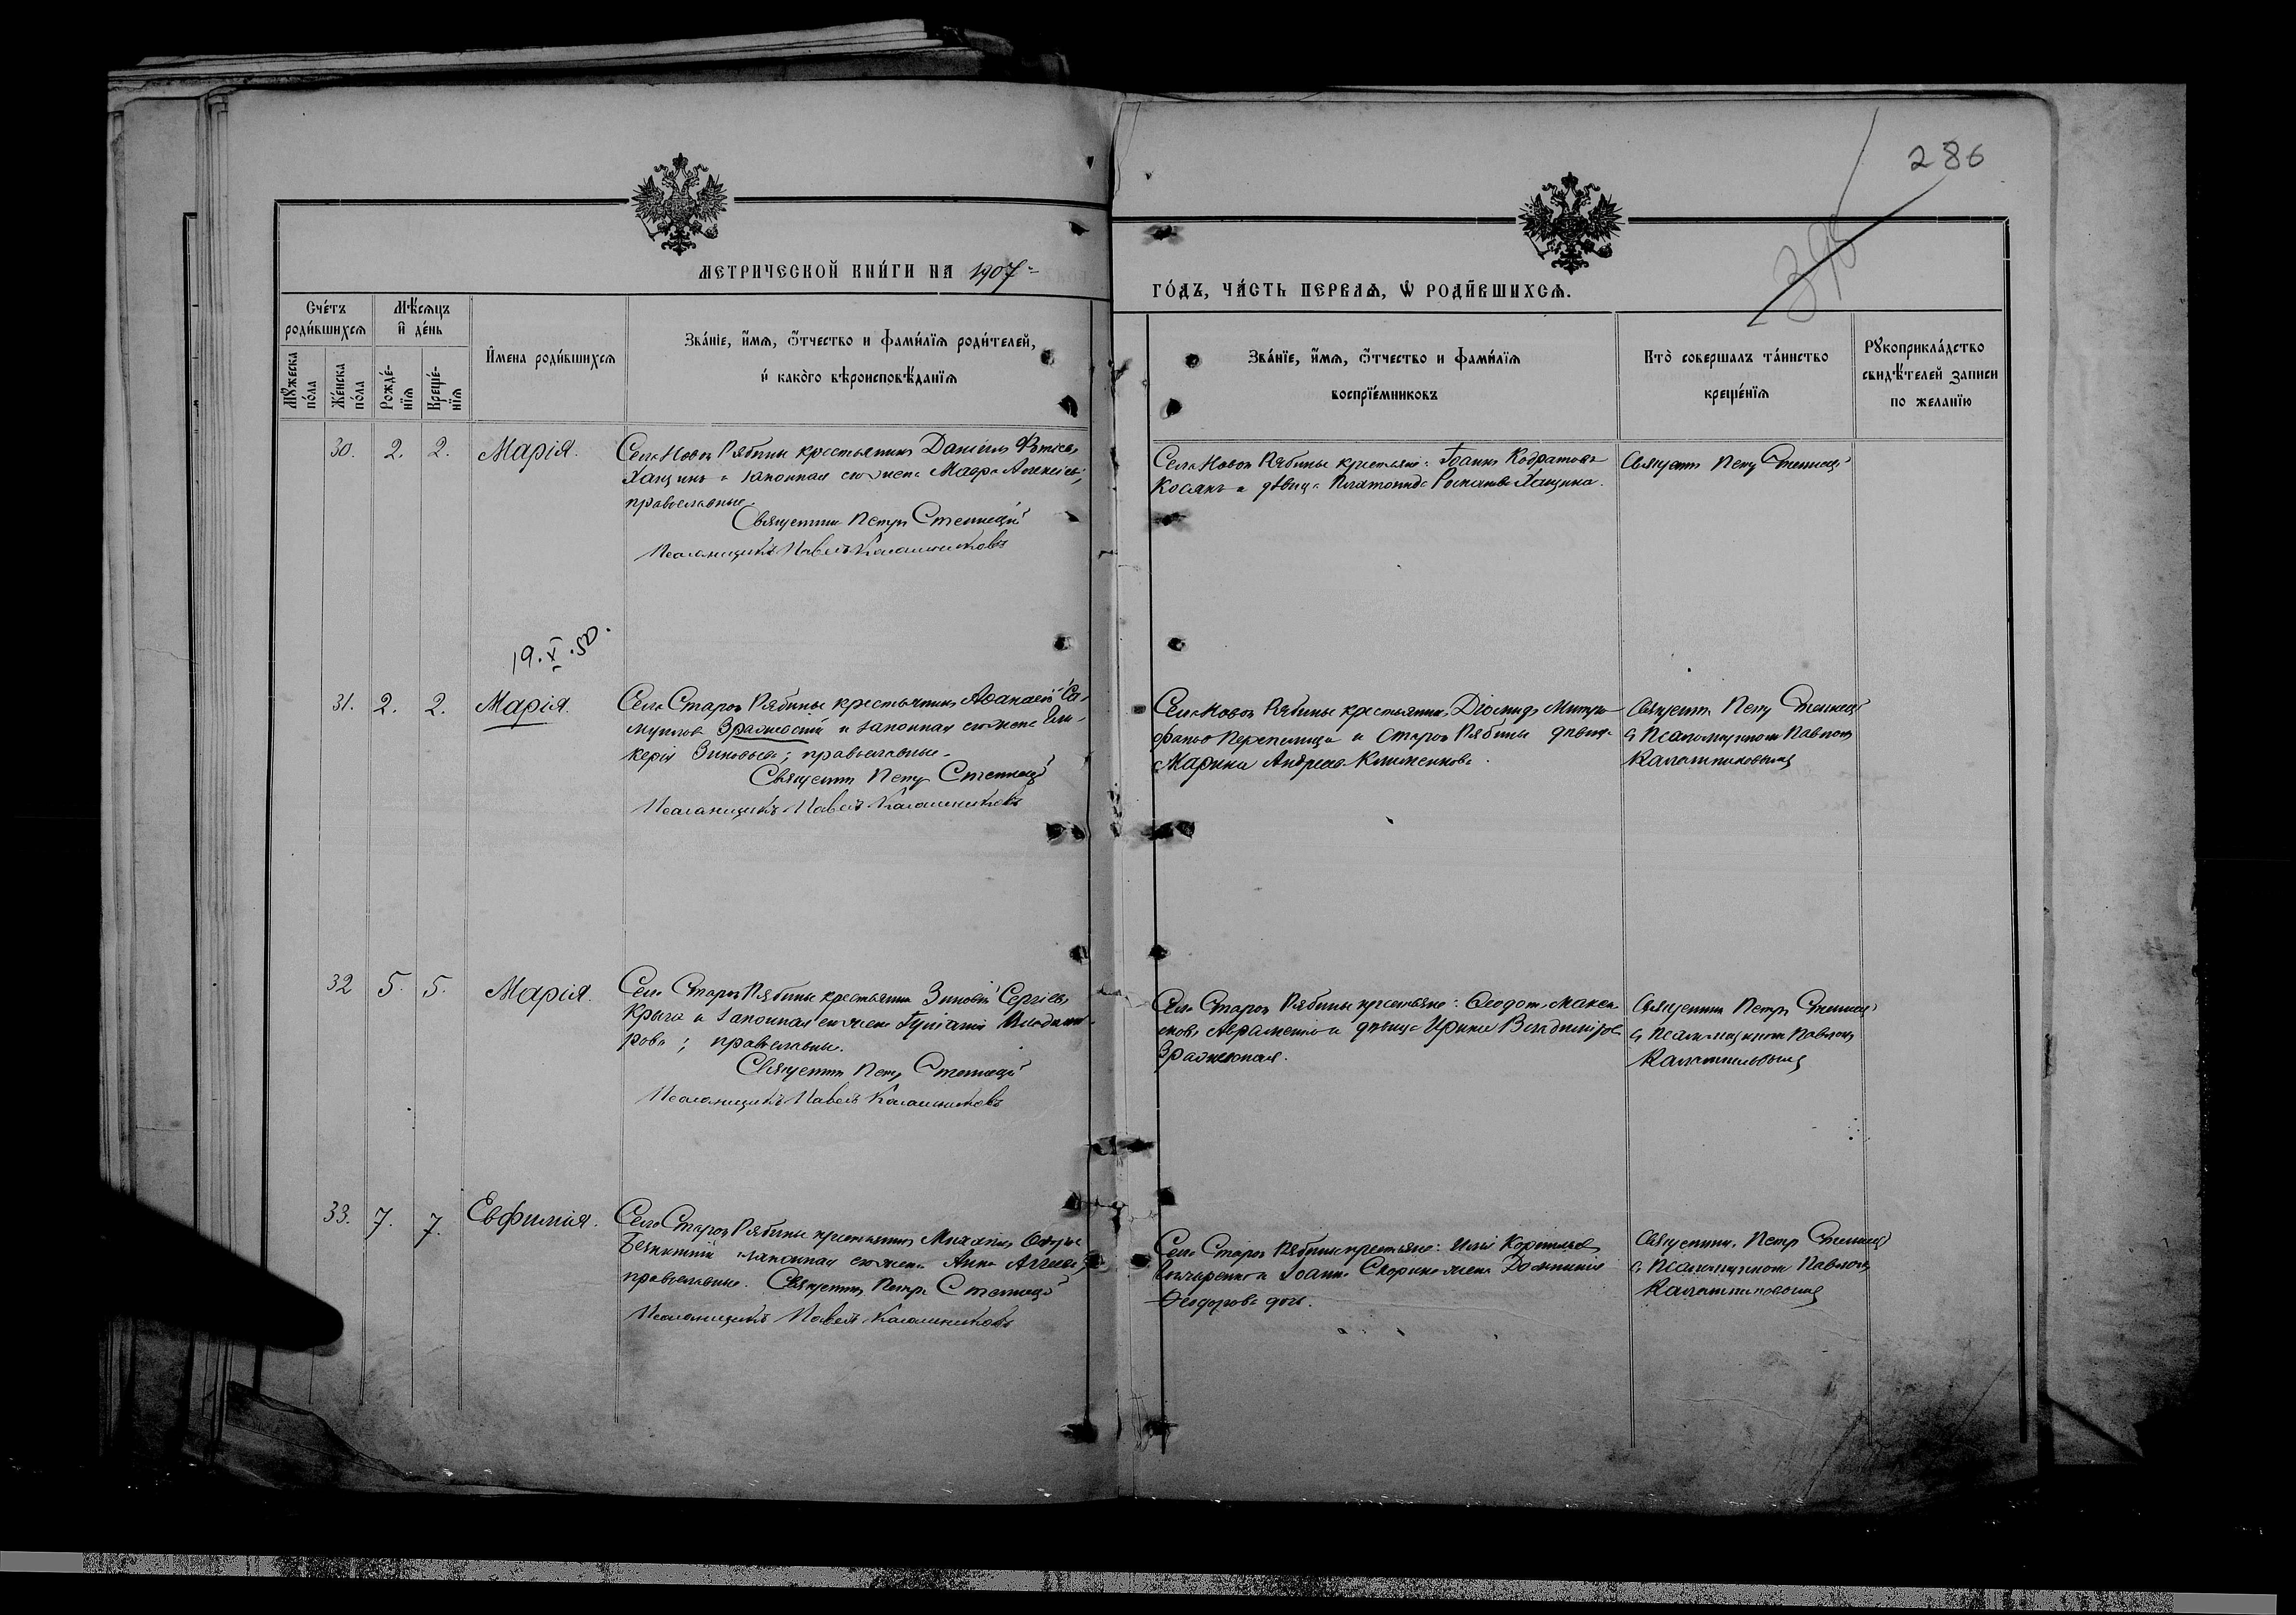 286
398
МЕТРИЧЕСКОЙ КНИ́ГИ НА 1907
ГО́ДЪ, ЧА́СТЬ ПЕРВАѦ, Ѡ҆ РОДИ́ВШИХСѦ.
Сче́тъ роди́вшихсѧ
Мѣ́сѧцъ и҆ де́нь
И҆мена роди́вшихсѧ
Зва́нїе, и҆́мѧ, ѻ҆́тчество и фами́лїѧ роди́телей,
и҆ како́го вѣроисповѣ́данїѧ
Мꙋ́жеска по́ла
Же́нска по́ла
Рожде́-нїѧ
Креще́-нїѧ
Зва́нїе, и҆́мѧ, ѻ҆́тчество и фами́лїѧ
воспрїе́мниковъ
Кто̀ совершалъ та́инство
креще́нїѧ
Рꙋкоприкла́дство
свидѣ́телей записи
по желанїю
30. 2. 2. Марія.
Села Новой Рябины крестьянинъ Даніилъ
Хащинъ и законная его жена Мавра Алексѣева;
православные.
Священникъ Петръ Стеллецкій
Псаломщикъ Павелъ Калашниковъ
Села Новой Рябины крестьяне: Іоаннъ Кодратовъ
Косякъ и дѣвица Платонида Романова Хащина.
Священникъ Петръ Стеллецкій
19.X.50.
31. 2. 2. Марія.
Села Старой Рябины крестьянинъ Афанасій Са-
муиловъ Зражевскій и законная его жена Гли-
керія Зиновьева; православные.
Священникъ Петръ Стеллецкій
Псаломщикъ Павелъ Калашниковъ
Села Новой Рябины крестьянинъ Діомидъ Митро-
фановъ Перепелица и Старой Рябины дѣвица
Марина Андреева Клименкова.
Священникъ Петръ Стеллецкій
съ Псаломщикомъ Павломъ
Калашниковымъ
32 5. 5. Марія.
Села Старой Рябины крестьянинъ Зиновій Сергіевъ
и законная его жена Іуліанія Владими-
рова; православные.
Священникъ Петръ Стеллецкій
Псаломщикъ Павелъ Калашниковъ
Села Старой Рябины крестьяне: Ѳеодотъ Макси-
мовъ Авраменко и дѣвица Ирина Владимірова
Зражевская.
Священникъ Петръ Стеллецкій
съ Псаломщикомъ Павломъ
Калашниковымъ
33. 7. 7. Евфимія.
Села Старой Рябины крестьянинъ Михаилъ
законная его жена Анна
православные. Священникъ Петръ Стеллецкій
Псаломщикъ Павелъ Калашниковъ
Села Старой Рябины крестьяне: Корниліевъ
Гончаренко и Іоанна Скорика жена Домникія
Ѳеодорова дочь.
Священникъ Петръ Стеллецкій
съ Псаломщикомъ Павломъ
Калашниковымъ